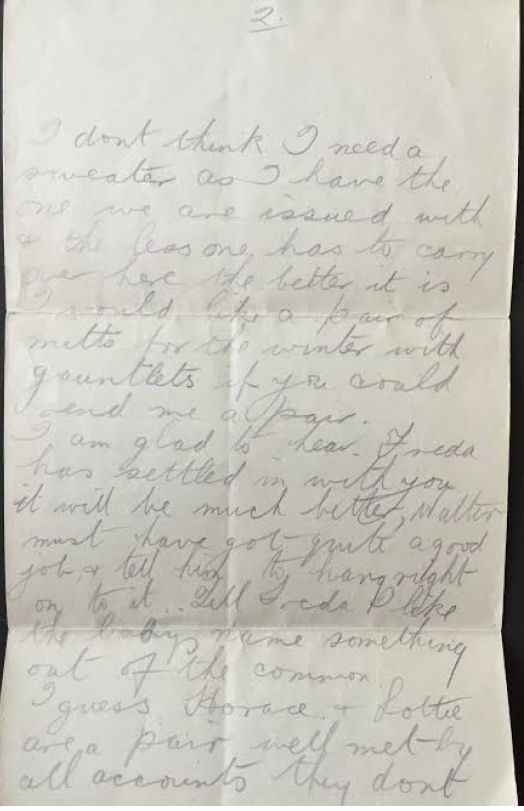 2.
I dont think I need a
sweater as I have the
one we are issued with
& the less one has to carry
over here the better it is
I would like a pair of
mitts for the winter with
gauntlets if you could
send me a pair.
I am glad to hear Freda
has settled in with you
it will be much better, Walter
must have got quite a good
job & tell him to hang right
on to it. Tell Freda I like
the babys name something
out of the common.
I guess Horace & Lottie
are a pair well met by
all accounts they dont